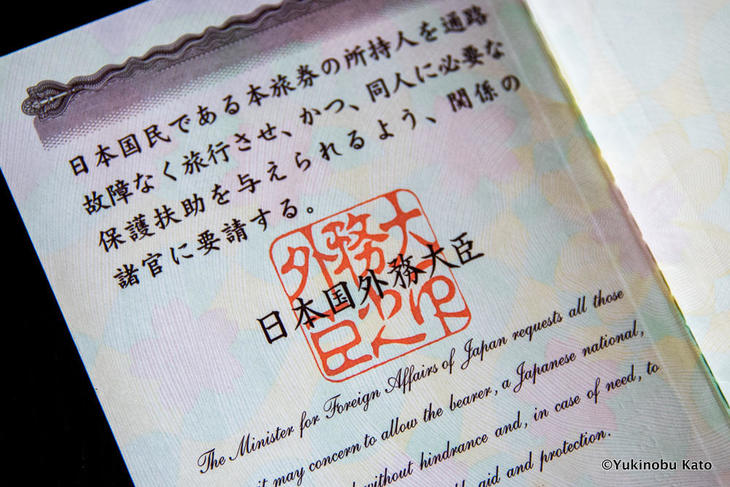 日本国民である本旅券の所持人を通路
故障なく旅行させ、かつ、同人に必要な
保護扶助を与えられるよう、関係の
諸官に要請する。
日本国外務大臣
The Minister for Foreign Affairs of Japan requests all those
it may concern to allow the bearer, a Japanese national,
without hindrance and, in case of need, to
aid and protection.
©Yukinobu Kato